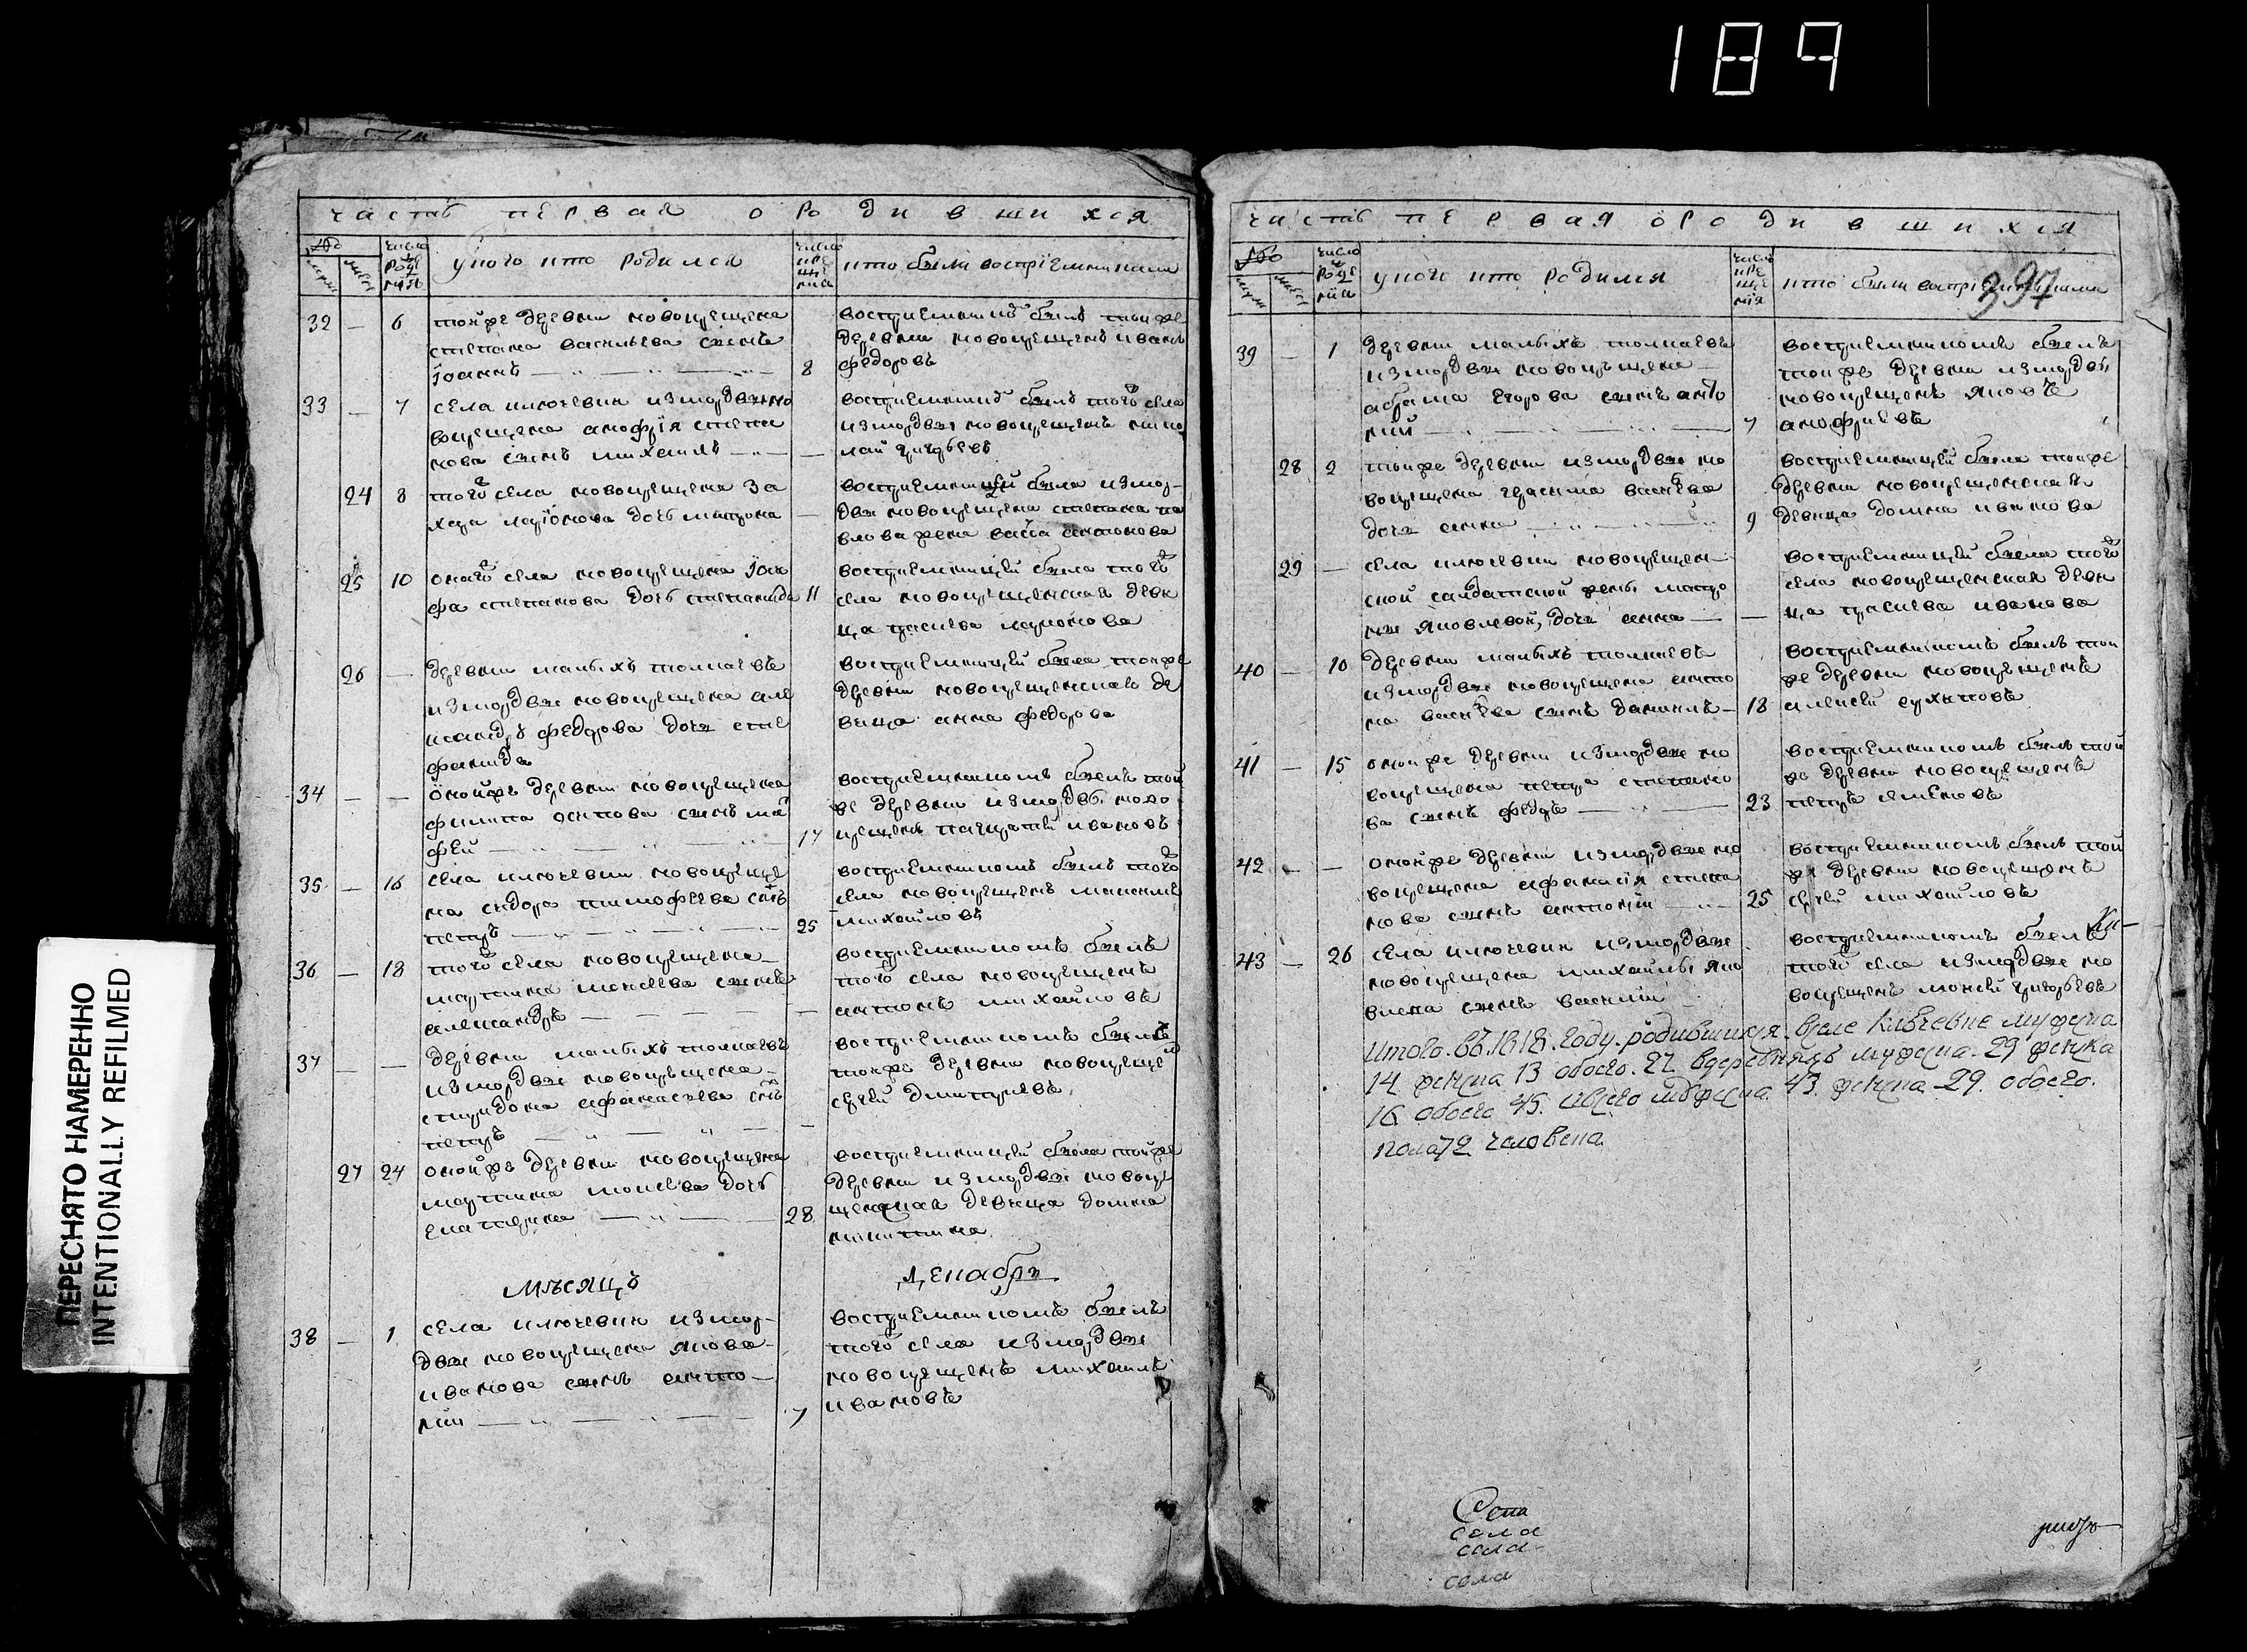 189
ПЕРЕСНЯТО НАМЕРЕННО
INTENTIONALLY REFILMED
часть первая о родившихся
№
число рождения
У кого кто родился
число крещения
кто были восприемники
32 — 6 тойже деревни новокрещена
степана васильева сынъ
иоаннъ — 8
восприемникъ былъ тойже
деревни новокрещенъ иванъ
федоровъ
33 — 7 села ключевки измордвы но
вокрещена анофрія степа
нова сынъ михаилъ — —
восприемникъ былъ того села
измордвы новокрещенъ нико
лай григорьевъ
24 8 того села новокрещена за
хара ларіонова дочь матрона —
восприемницей была измор-
двы новокрещена степана па
влова жена васса антонова
25 10 онаго села новокрещена
степанова дочь степанида 11
восприемницей была того
села новокрещенская деви
ца ларионова
26 — деревни малыхъ толкаевъ
измордвы новокрещена але
ксандра федорова дочь сте
фанида
восприемницей была тойже
деревни новокрещенская де
вица анна федорова
34 — — онойже деревни новокрещена
филиппа осипова сынъ мат
фей — 17
восприемникомъ былъ той
же деревни измордвы ново
крещенъ ивановъ
35 — 16 села ключевки новокреще
на сидора тимофеева сынъ
петръ — 25
восприемникомъ былъ того
села новокрещенъ максимъ
михайловъ
36 — 18 того села новокрещена
мартина моисеева сынъ
александръ — —
восприемникомъ былъ
того села новокрещенъ
антонъ михайловъ
37 — — деревни малыхъ толкаевъ
измордвы новокрещена
спиридона афанасьева сынъ
петръ — —
восприемникомъ былъ
тойже деревни новокрещенъ
сергей дмитриевъ
27 24 онойже деревни новокрещена
мартина моисеева дочь
екатерина — 28
восприемницей была тойже
деревни измордвы новокре
щенская девица домна
никитина
Мѣсяцъ декабрь
38 — 1 села ключевки измор-
двы новокрещена якова
иванова сынъ анто-
ній — 7
восприемникомъ былъ
того села измордвы
новокрещенъ михаилъ
ивановъ
часть первая о родившихся
397
№
число рождения
у кого кто родился
число крещения
кто были восприемники
39 — 1 деревни малыхъ толкаевъ
измордвы новокрещена
абрама егорова сынъ анто
ній — 7
восприемникомъ былъ
тойже деревни измордвы
новокрещенъ яковъ
анофриевъ
28 2 тойже деревни измордвы но
вокрещена герасима
дочь анна — 9
восприемницей была тойже
деревни новокрещенская
девица домна иванова
29 — села ключевки новокрещен-
ской салдатской жены матро
ны яковлевой, дочь анна — —
восприемницей была того
села новокрещенская деви
ца иванова
40 — 10 деревни малыхъ толкаевъ
измордвы новокрещена анто
на сынъ даниилъ — 18
восприемникомъ былъ той
же деревни новокрещенъ
алексей
41 — 15 онойже деревни измордвы но
вокрещена петра степано
ва сынъ федръ — 23
восприемникомъ былъ той
же деревни новокрещенъ
петръ семеновъ
42 — — онойже деревни измордвы но
вокрещена афанасія степа
нова сынъ антоній — 25
восприемникомъ былъ той
же деревни новокрещенъ
сергей михайловъ
43 — 26 села ключевки измордвы
новокрещена михайлы яко
влева сынъ василій
восприемникомъ былъ
того села измордвы но
вокрещенъ григорьевъ
Итого въ 1818 году родившихся вселе Ключевке мужеска
14 женска 13 обоего 27 вдеревняхъ мужеска 29 женска
16 обоего 45 ивсего мужеска 43 женска 29 обоего
пола 72 человека
Села
села
села
села